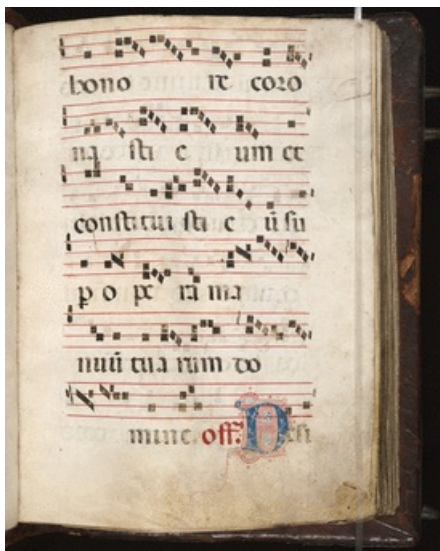 bono re coro
na sti e um et
constitui sti e ũ su
p o pe ra ma
nuũ tua rum do
mine. off. Desi